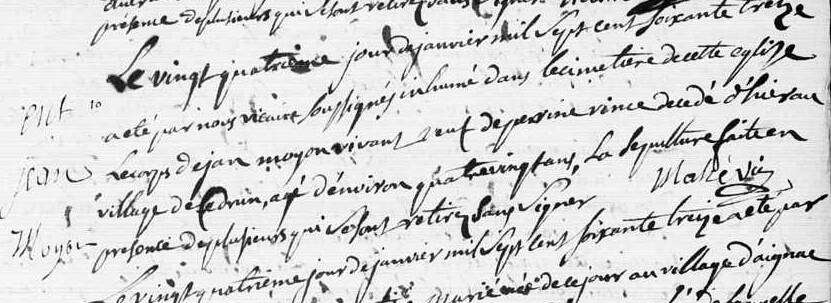 présence de plusieurs qui se sont retirez sans signer
Le vingt quatrième jour de janvier mil sept cent soixante treize
a été par nous vicaire soussignés inhumé dans le cimetiere de cette eglise
Le corps de jan moyon vivant veuf de perrine vince decedé d'hier au
village de Cedrun, agé d'environ quatre vingt ans, La sepulture faite en
présence de plusieurs qui se sont retirez sans signer Mahé vic
Le vingt quatrième jour de janvier mil sept cent soixante treize a eté par
de ce jour au village d'aignac
ent to
jean
Moyon